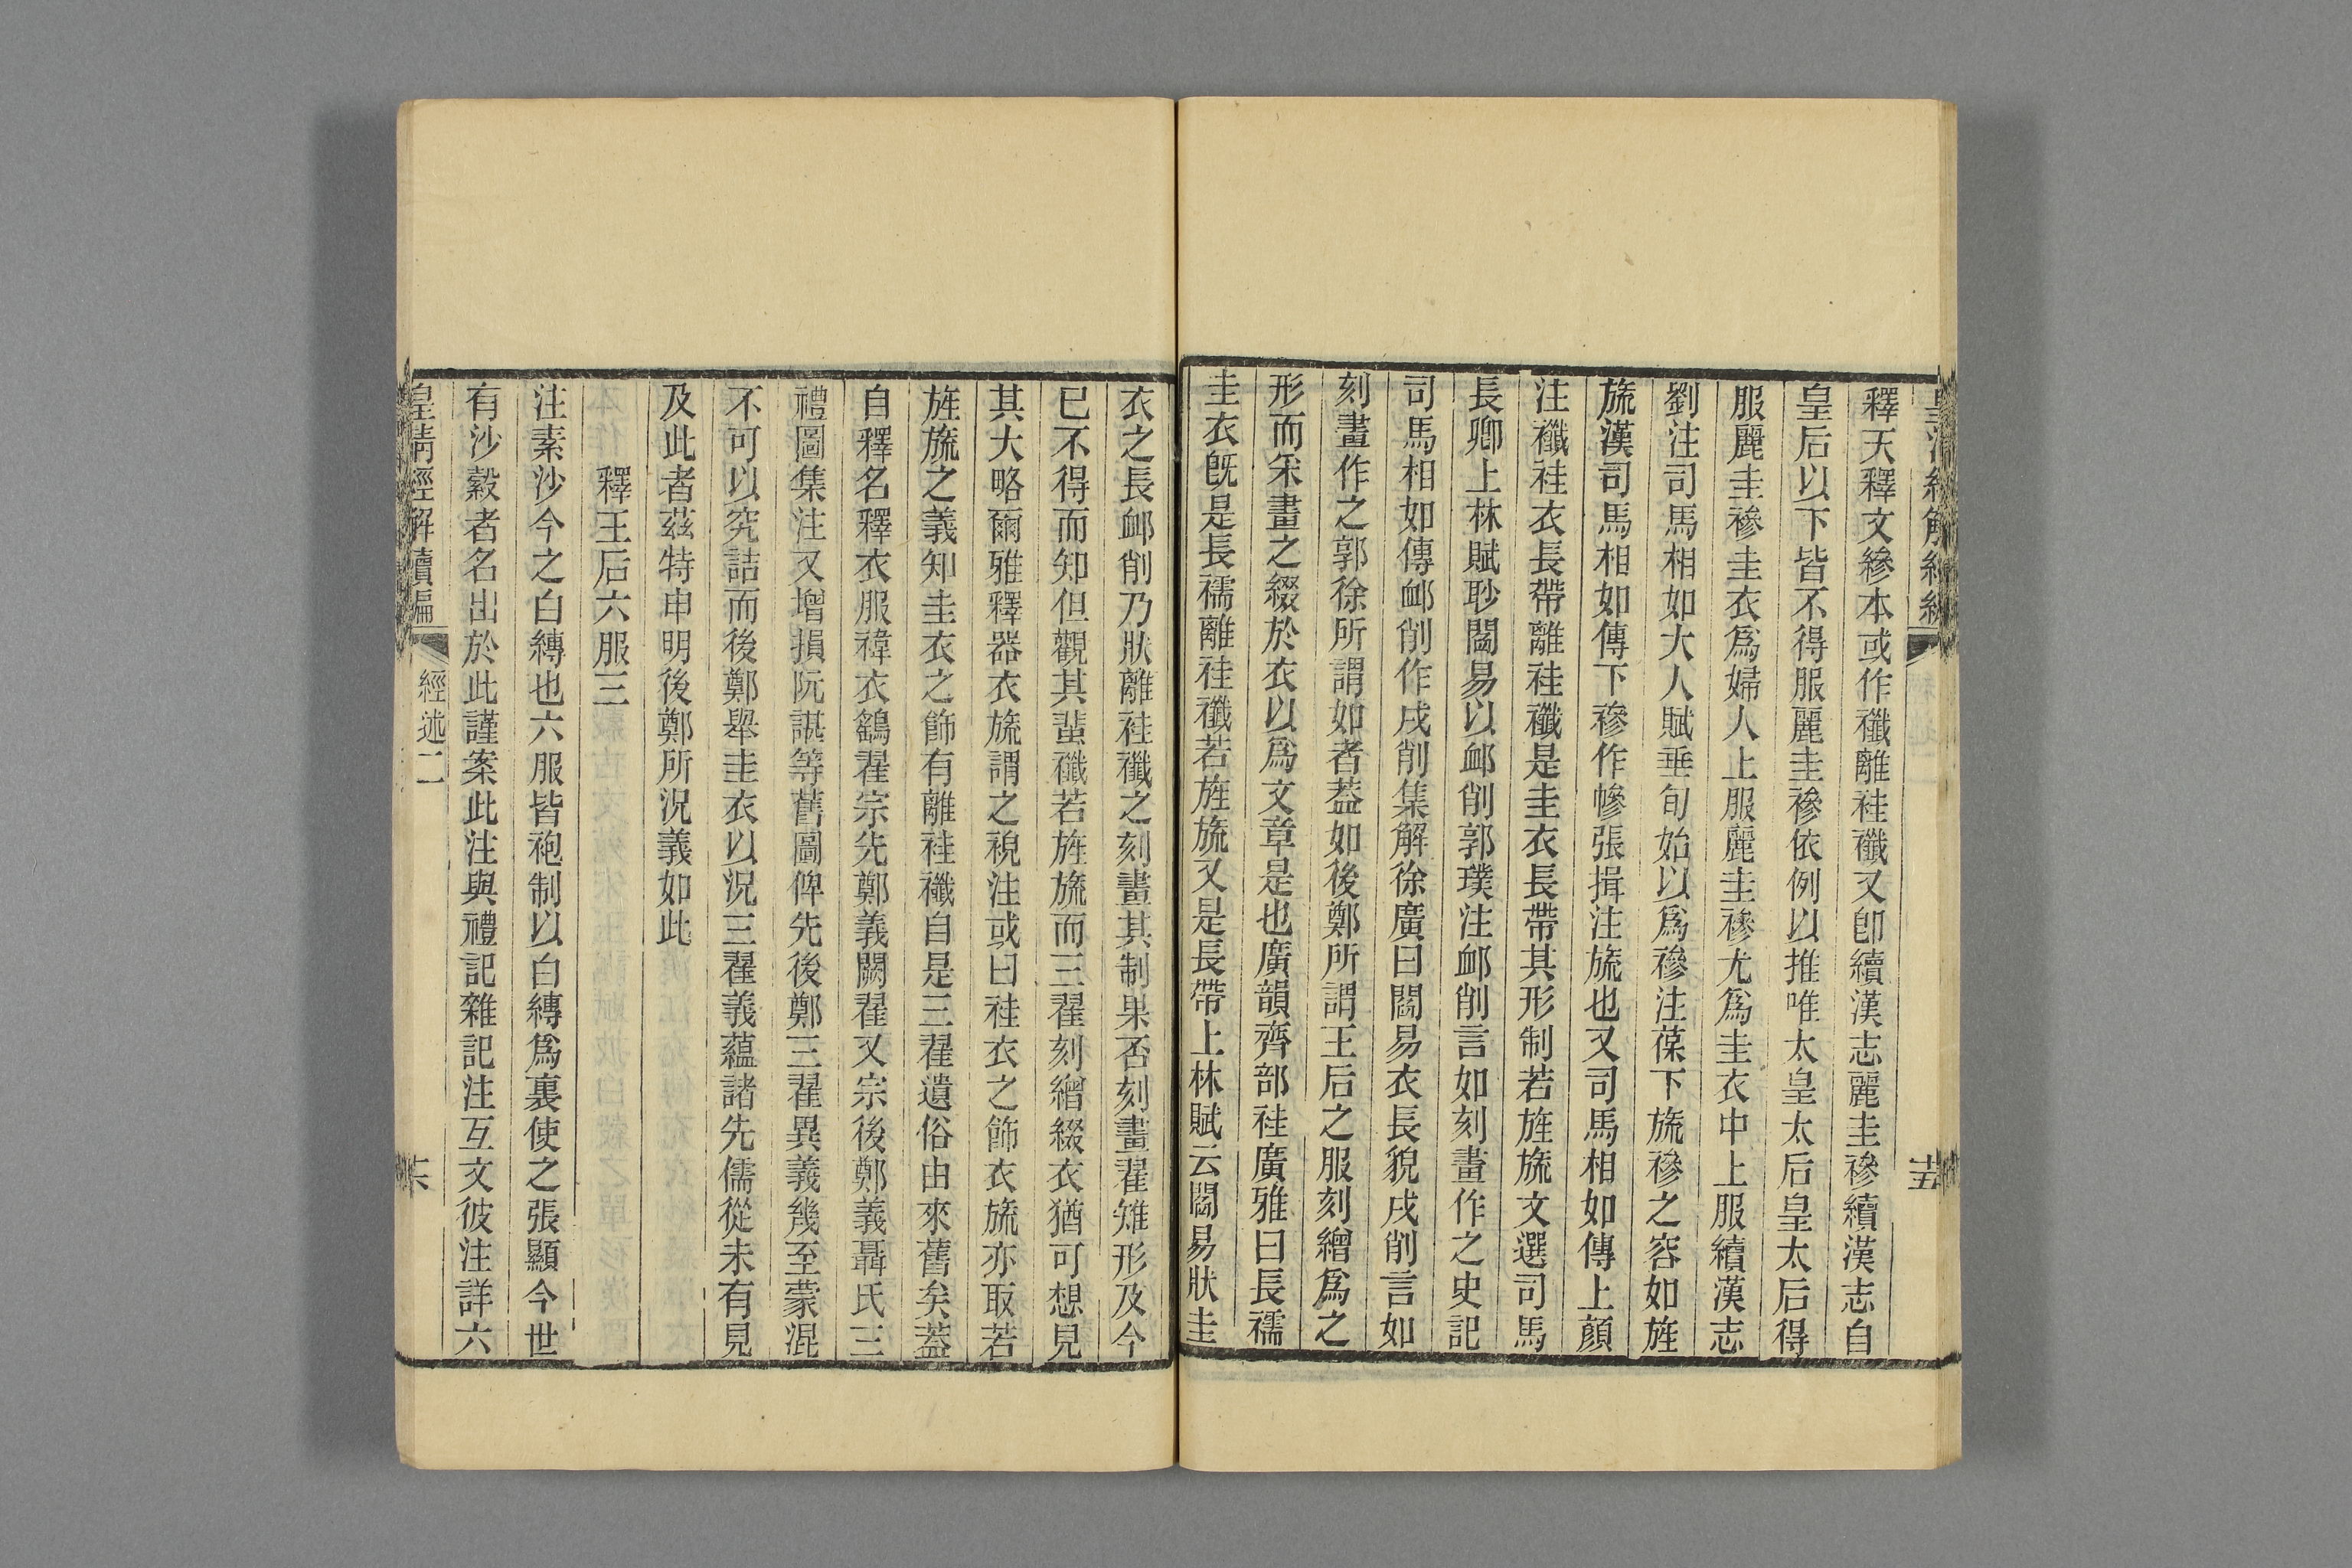 釋天釋文縿本或作襳離袿襳又卽續漢志麗圭襂續漢志自
皇后以下皆不得服麗圭襂依例以推唯太皇太后皇太后得
服麗圭襂圭衣爲婦人上服麗圭襂尤爲圭衣中上服續漢志
劉注司馬相如大人賦垂旬始以爲襂注葆下旒襂之容如旌
旒漢司馬相如傳下襂作幓張揖注旒也又司馬相如傳上顏
注襳袿衣長帶離袿襳是圭衣長帶其形制若旌旒文選司馬
長卿上林賦眇閻易以卹削郭璞注卹削言如刻畫作之史記
司馬相如傳卹削作戌削集解徐廣曰閻易衣長貌戌削言如
刻畫作之郭徐所謂如者葢如後鄭所謂王后之服刻繒爲之
形而采畫之綴於衣以爲文章是也廣韻齊部袿廣雅曰長襦
圭衣旣是長襦離袿襳若旌旒又是長帶上林賦云閻易狀圭
衣之長卹削乃狀離袿襳之刻畫其制果否刻畫翟雉形及今
已不得而知但觀其蜚襳若旌旒而三翟刻繒綴衣猶可想見
其大略爾雅釋器衣旒謂之䙿注或曰袿衣之飾衣旒亦取若
旌旒之義知圭衣之飾有離袿襳自是三翟遺俗由來舊矣葢
自釋名釋衣服褘衣鷂翟宗先鄭義闕翟又宗後鄭義聶氏三
禮圖集注又增損阮諶等舊圖俾先後鄭三翟異義幾至蒙混
不可以究詰而後鄭舉圭衣以況三翟義蘊諸先儒從未有見
及此者茲特申明後鄭所況義如此
釋王后六服三
注素沙今之白縳也六服皆袍制以白縳爲裏使之張顯今世
有沙縠者名出於此謹案此注與禮記雜記注互文彼注詳六
皇淸經解續編
經述二